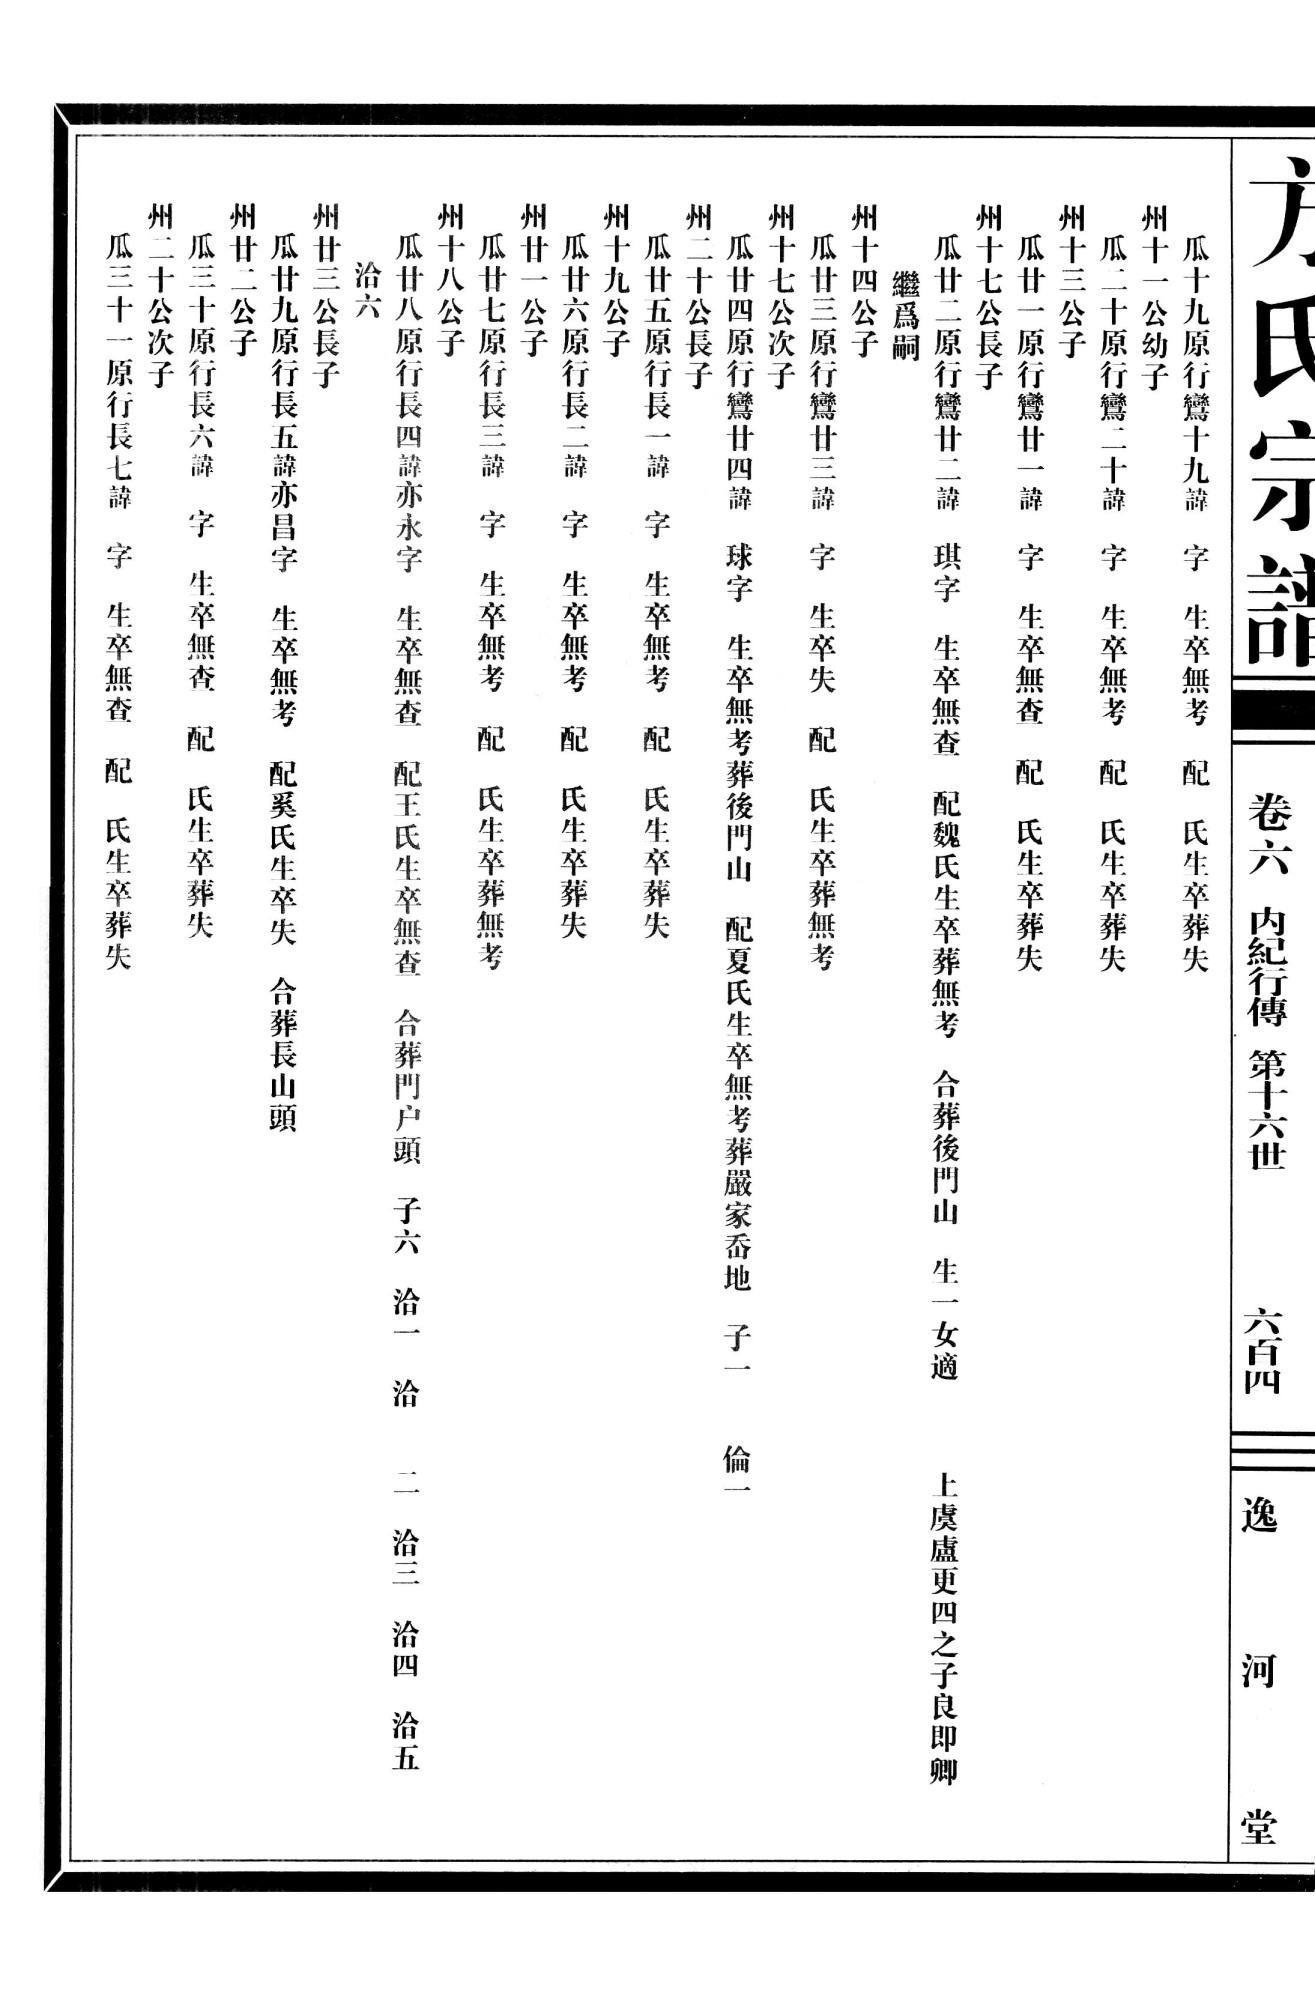 方氏宗譜
卷六 内紀行傳 第十六世 六百四
逸河堂
瓜十九原行鸞十九諱 字 生卒無考 配 氏生卒葬失
州十一公幼子
瓜二十原行鸞二十諱 字 生卒無考 配 氏生卒葬失
州十三公子
瓜廿一原行鸞廿一諱 字 生卒無查 配 氏生卒葬失
州十七公長子
瓜廿二原行鸞廿二諱 琪字 生卒無查 配魏氏生卒葬無考 合葬後門山 生一女適 上虞盧更四之子良即卿
繼爲嗣
州十四公子
瓜廿三原行鸞廿三諱 字 生卒失 配 氏生卒葬無考
州十七公次子
瓜廿四原行鸞廿四諱 球字 生卒無考葬後門山 配夏氏生卒無考葬嚴家岙地 子一 倫一
州二十公長子
瓜廿五原行長一諱 字 生卒無考 配 氏生卒葬失
州十九公子
瓜廿六原行長二諱 字 生卒無考 配 氏生卒葬失
州廿一公子
瓜廿七原行長三諱 字 生卒無考 配 氏生卒葬無考
州十八公子
瓜廿八原行長四諱亦永字 生卒無查 配王氏生卒無查 合葬門户頭 子六 洽一 洽 二 洽三 洽四 洽五
洽六
州廿三公長子
瓜廿九原行長五諱亦昌字 生卒無考 配奚氏生卒失 合葬長山頭
州廿二公子
瓜三十原行長六諱 字 生卒無查 配 氏生卒葬失
州二十公次子
瓜三十一原行長七諱 字 生卒無查 配 氏生卒葬失